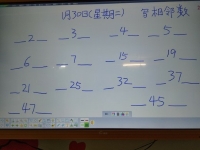 1月30日(星期二) 写相邻数
__2__ __3__ __4__ __5__
__6__ __7__ __15__ __19__
__21__ __25__ __32__ __37__
__47__ __45__